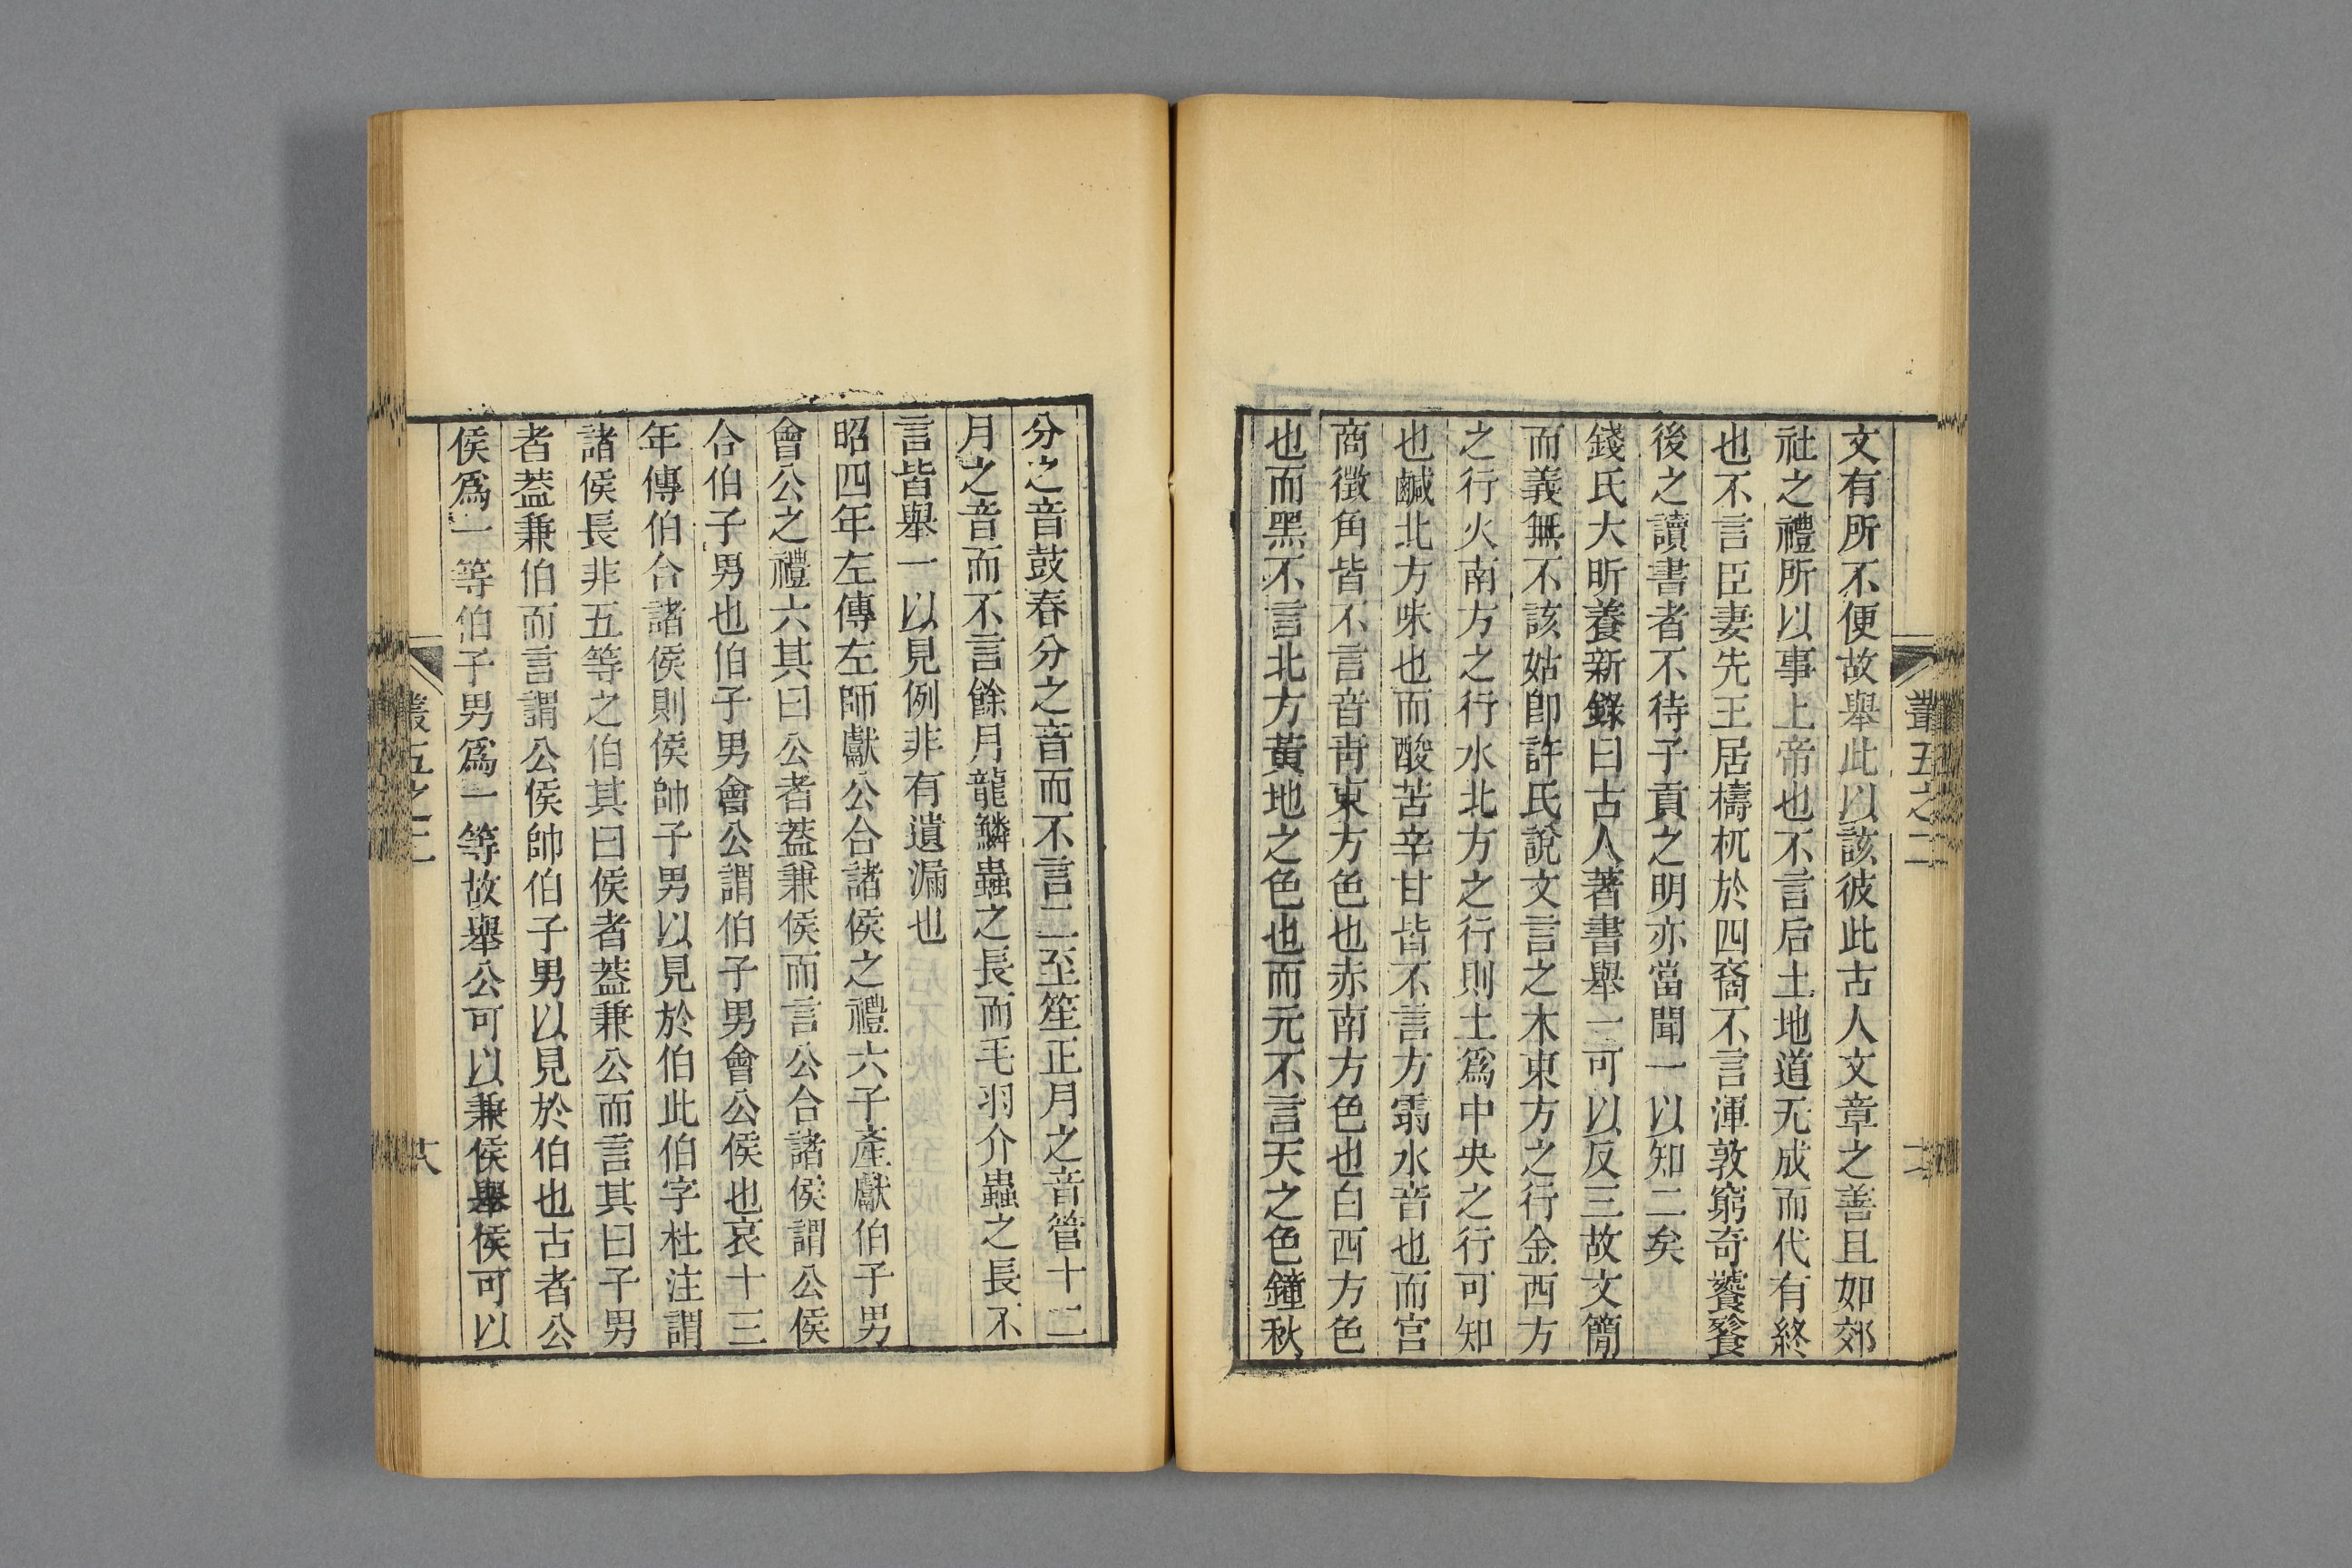 文有所不便故舉此以該彼此古人文章之善且如郊
社之禮所以事上帝也不言后土地道无成而代有終
也不言臣妻先王居檮杌於四裔不言渾敦窮奇饕餮
後之讀書者不待子貢之明亦當聞一以知二矣
錢氏大昕養新錄曰古人著書舉一可以反三故文簡
而義無不該姑卽許氏說文言之木東方之行金西方
之行火南方之行水北方之行則土爲中央之行可知
也鹹北方味也而酸苦辛甘皆不言方霛水音也而宮
商徵角皆不言音靑東方色也赤南方色也白西方色
也而黑不言北方黃地之色也而元不言天之色鐘秋
叢五之二
分之音鼓春分之音而不言二至笙正月之音管十二
月之音而不言餘月龍鱗蟲之長而毛羽介蟲之長不
言皆舉一以見例非有遺漏也
昭四年左傳左師獻公合諸侯之禮六子產獻伯子男
會公之禮六其曰公者葢兼侯而言公合諸侯謂公侯
合伯子男也伯子男會公謂伯子男會公侯也哀十三
年傳伯合諸侯則侯帥子男以見於伯此伯字杜注謂
諸侯長非五等之伯其曰侯者葢兼公而言其曰子男
者葢兼伯而言謂公侯帥伯子男以見於伯也古者公
侯爲一等伯子男爲一等故舉公可以兼侯舉侯可以